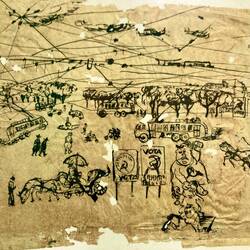 VOTA
VOTA